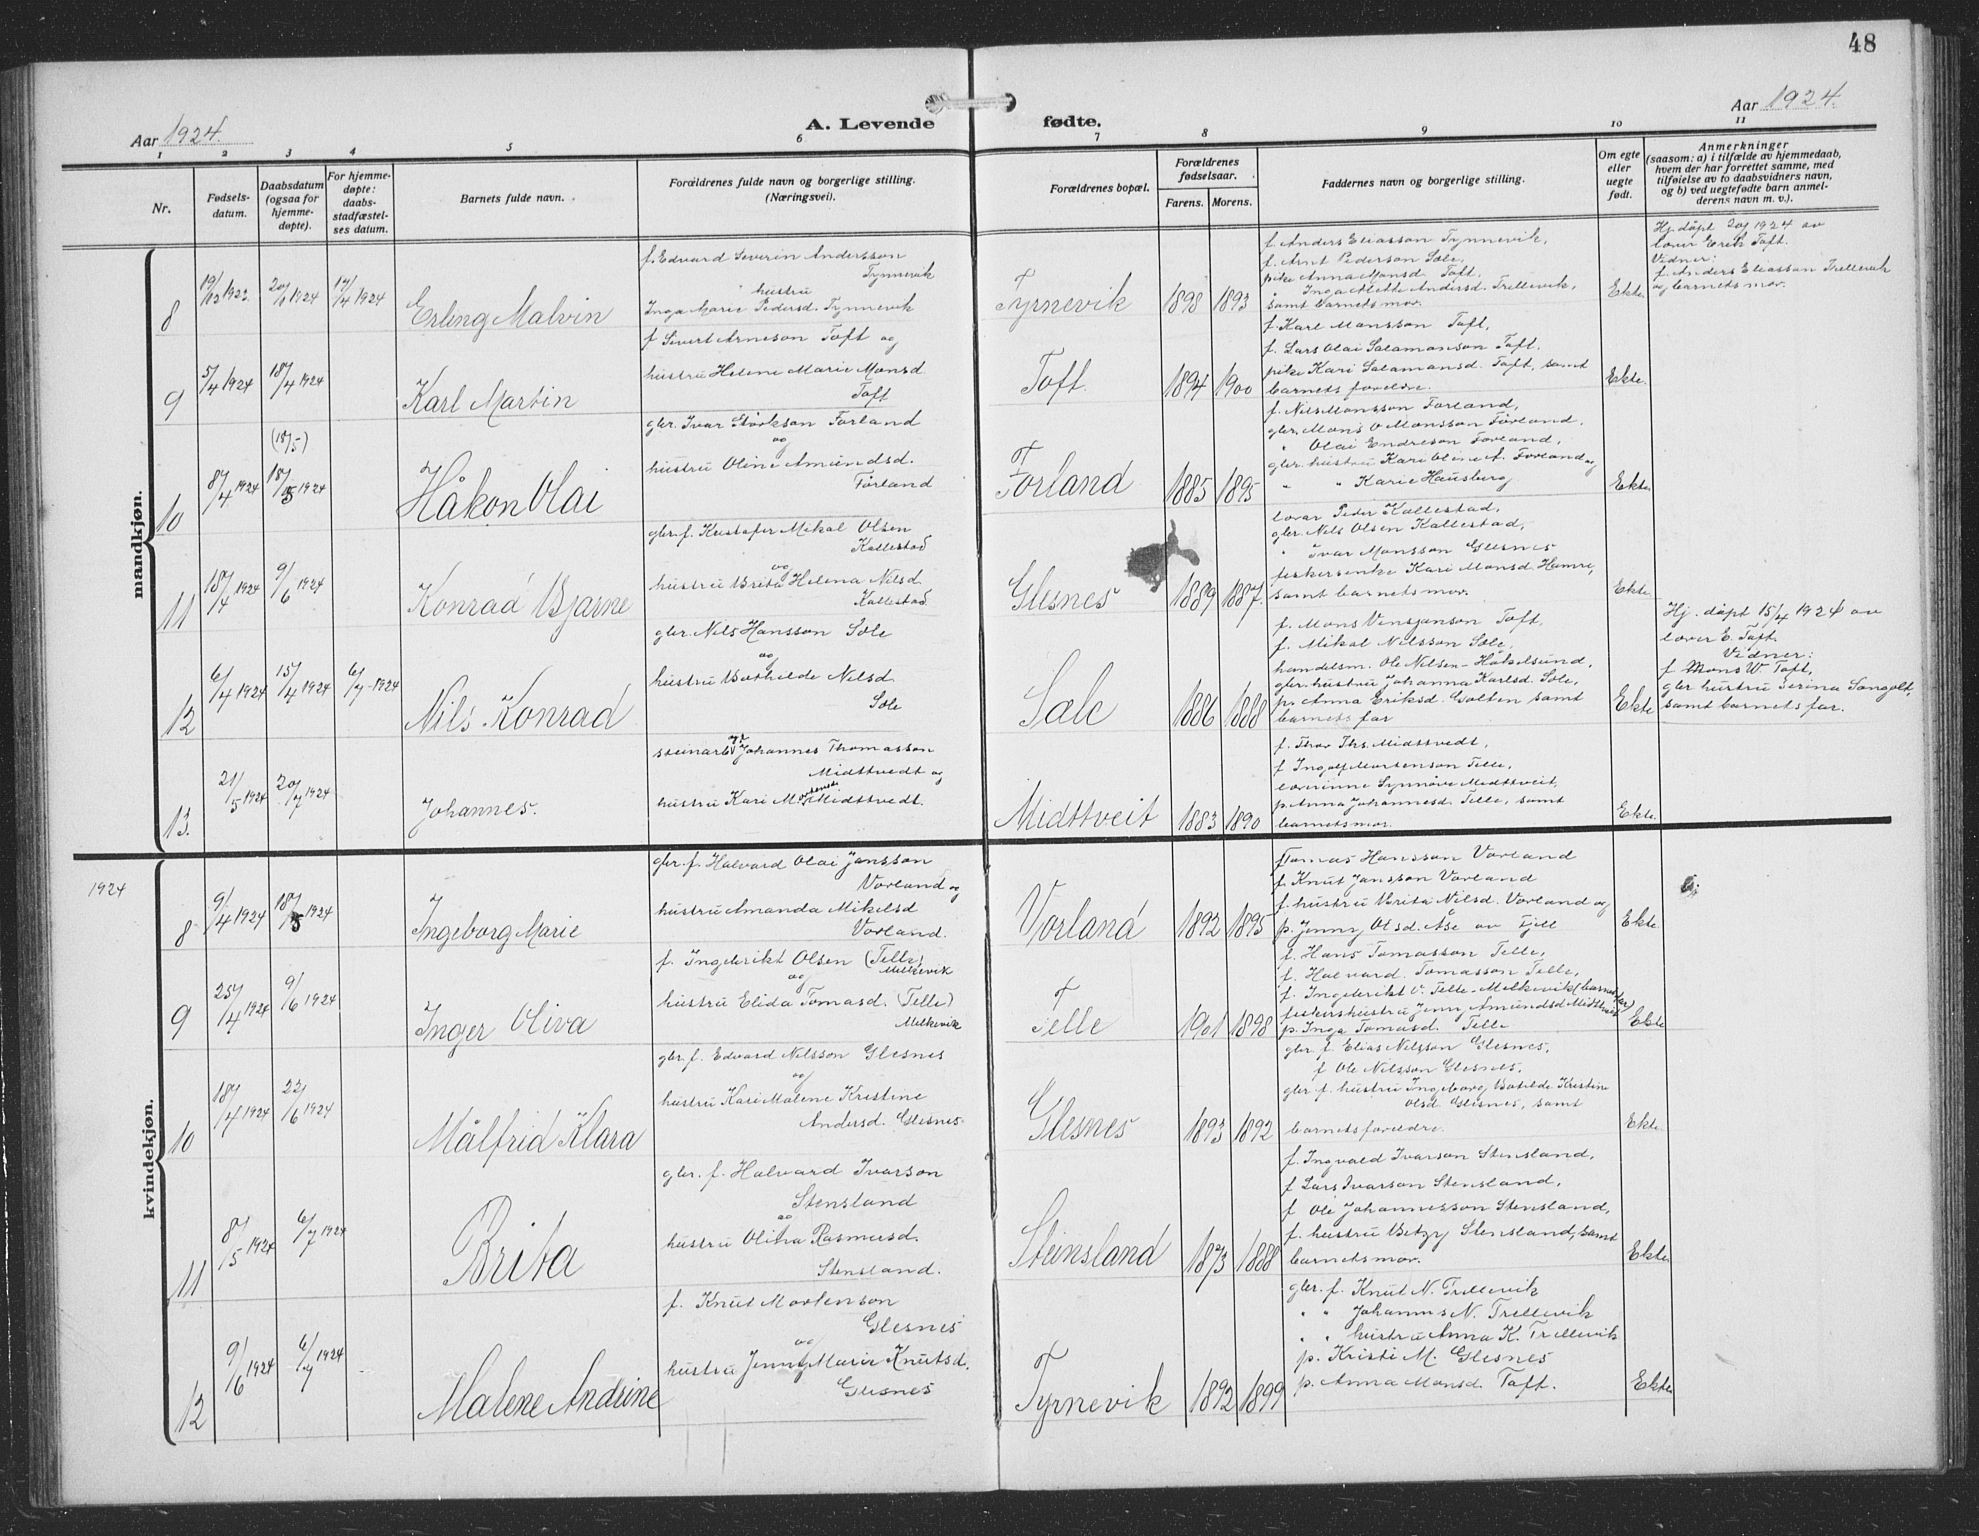 48
Aar 1924.
A. Levende fødte.
Aar 1924.
1 2 3 4 5 6 7 8 9 10 11
Nr.
Fødsels-
datum.
Daabsdatum
(ogsaa for
hjemme-
døpte).
For hjemme-
døpte:
daabs-
stadfæstel-
ses datum.
Barnets fulde navn.
Forældrenes fulde navn og borgerlige stilling.
(Næringsvei).
Forældrenes bopæl.
Forældrenes
fødselsaar.
Farens. Morens.
Faddernes navn og borgerlige stilling.
Om egte
eller
uegte
født.
Anmerkninger
(saasom: a) i tilfælde av hjemmedaab,
hvem der har forrettet samme, med
tilføielse av to daabsvidners navn,
og b) ved uegtefødte barn anmel-
derens navn m. v.).
mandkjøn.
8
19/12 1923
20/1 1924
17/4 1924
Erling Malvin
f. Edvard Severin Andersson
Tynnevik
hustru
Inga Marie Pedersd. Tynnevik
Tyrnevik
1898 1893
f. Anders Eliasson Tynnevik,
f. Arnt Pederson Sæle,
pike Anna Monsd. Toft,
" Inga Alette Andersd. Trellevik,
samt barnets mor.
Ekte
Hj. døpt 20/1 1924 av
lærer Erik Toft.
Vidner:
f. Anders Eliasson Trellevik
og barnets mor.
9
5/4 1924
18/4 1924
Karl Martin
f Sivert Arneson Toft og
hustru Helene Marie Monsd
Toft
Toft.
1894 1900
f. Karl Monsson Toft,
f. Lars Olai Salamonson Toft.
pike Kari Salamonsd. Toft, samt
barnets foreldre.
Ekte.
10
8/4 1924
(18/5)
18/5 1924
Håkon Olai
gbr. Ivar Størkson Forland
og
hustru Oline Amundsd.
Førland
Forland
1885 1895
f. Nils Monsson Forland,
gbr. Mons O Monsson Førland,
" Olai Endreson Førland,
gbr. hustru Kari Oline A. Førland og
" " Karie Hausberg
Ekte
11
18/4 1924
9/6 1924
Konrad Bjarne
gbr. f. Kristofer Mikal Olsen
Kallestad
og
hustru Brita Helena Nilsd
Kallestad
Glesnes
1889 1887.
lærar Peder Kallestad,
gbr. Nils Olsen Kallestad,
" Ivar Monsson Glesnes
fiskerenke Kari Monsd. Hamre,
samt barnets mor.
Ekte
12
6/4 1924
15/4 1924
6/7 1924
Nils Konrad
gbr. Nils Hansson Sæle
og
hustru Bothilde Nilsd
Sæle
Sæle
1886 1888
f. Mons Vinsjanson Toft,
f. Mikal Nilsson Sæle,
handelsm. Ole Nilsen - Håkelsund,
gbr. hustru Johanna Karlsd. Sæle,
p. Anna Eriksd. Golten samt
barnets far
Ekte
Hj. døpt 15/4 1924 av
lærer E. Toft.
Vidner:
f Mons W. Toft,
gbr hustru Serina Sangolt,
samt barnets far.
13.
21/5 1924
20/7 1924
Johannes.
steinarb. Johannes Thomasson
Midttvedt og
hustru Kari Mortensd Midttvedt.
Midttveit
1883 1890
f. Thor Ths. Midttvedt,
f Ingolf Mortenson Telle,
lærerinne Synnøve Midttveit,
p. Anna Johannesd. Telle, samt
barnets mor.
Ekte.
1924
kvindekjøn.
8
9/4 1924
18/5 1924
Ingeborg Marie
gbr. f. Halvard Olai Jansson
Vorland og
hustru Amanda Mikelsd
Vorland.
Vorland
1892 1895
Tomas Hansson Vorland
f. Knut Jansson Vorland
f. hustru Brita Nilsd. Vorland og
p. Jenny Olsd. Åse av Fjell
Ekte.
9
25/4 1924
9/6 1924
Inger Oliva
f. Ingebrikt Olsen (Telle)
Melkevik
og
hustru Elida Tomasd. (Telle)
Melkevik
Telle
1901 1898
f. Hans Tomasson Telle,
f. Halvard. Tomasson Telle,
f. Ingebrikt O. Telle - Melkevik (barnets far)
fiskerhustru Jenny Amundsd Midttveit
p. Inga Tomasd. Telle
Ekte
10
18/4 1924
22/6 1924
Målfrid Klara
gbr. f. Edvard Nilsson Glesnes
og
hustru Kari Malene Kristine
Andersd. Glesnes.
Glesnes
1893 1892
gbr. f. Elias Nilsson Glesnes,
f Ole Nilsson Glesnes.
gbr f. hustru Ingeborg Botilde Kristine
Olsd. Glesnes, samt
barnets foreldre.
Ekte.
11
8/5 1924
6/7 1924
Brita
gbr. f. Halvard Ivarson
Stensland
og
hustru Olina Rasmusd.
Stensland.
Steinsland
1873 1888
f. Ingvald Ivarson Stensland,
f Lars Ivarson Stensland,
f Ole Johannesson Stensland,
f. hustru Betzy Stensland, samt
barnets mor.
Ekte.
12
9/6 1924
6/7 1924
Malene Andrine
f. Knut Mortenson
Glesnes
og
hustru Jenny Marie Knutsd.
Glesnes
Tyrnevik
1892 1899
gbr. f. Knut N. Trellevik
" " Johannes N. Trellevik
" " hustru Anna K. Trellevik
p. Kristi M. Glesnes
p. Anna Monsd. Toft.
Ekte